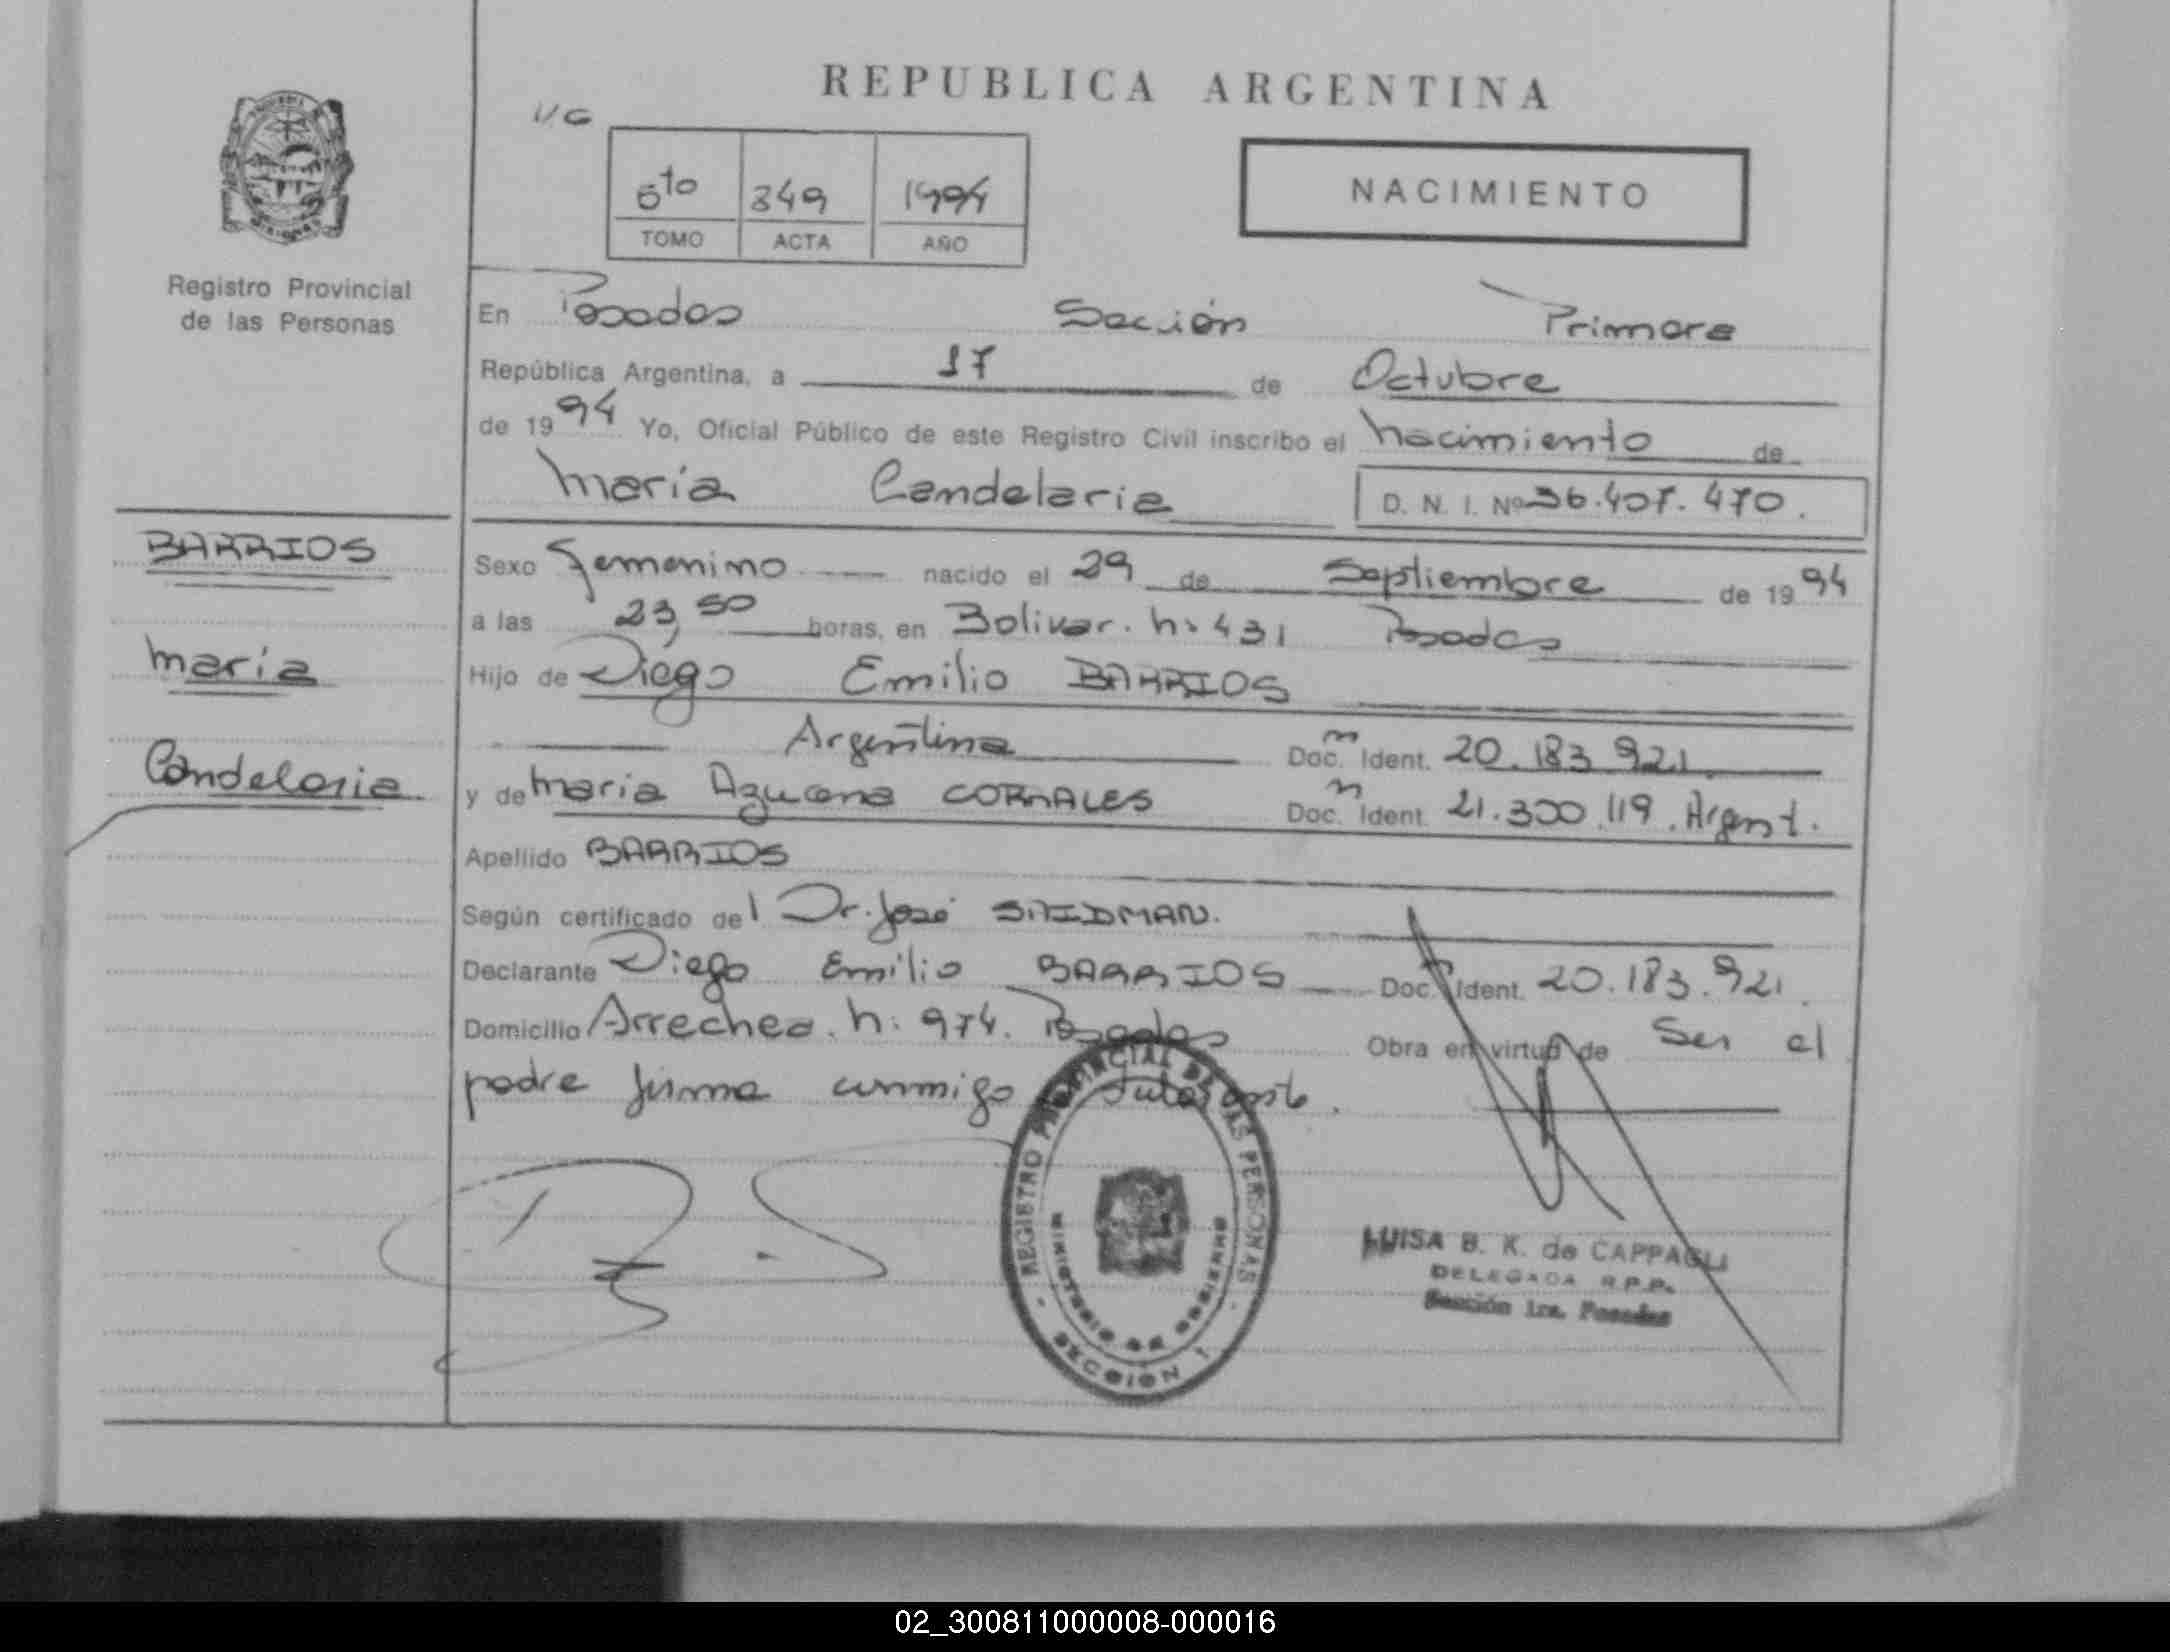 REPUBLICA ARGENTINA
1/6
6to 349 1994
TOMO ACTA AÑO
NACIMIENTO
Registro Provincial
de las Personas
En Posadas Sección Primera
República Argentina, a 17 de Octubre
de 1994 Yo, Oficial Público de este Registro Civil inscribo el nacimiento de
María Candelaria D. N. I. Nº 36.407.470.
BARRIOS
María
Candelaria
Sexo Femenino nacido el 29 de Septiembre de 1994
a las 23,50 horas, en Bolivar. n: 431 Posadas
Hijo de Diego Emilio BARRIOS
Argentina Doc. n Ident. 20.183.921.
y de Maria Azucena CORRALES Doc. n Ident. 21.300.119. Argent.
Apellido BARRIOS
Según certificado del Dr. José SAIDMAN.
Declarante Diego Emilio BARRIOS Doc. n Ident. 20.183.921.
Domicilio Arrechea. n: 974. Posadas Obra en virtud de Ser el
padre firma conmigo
REGISTRO PROVINCIAL DE LAS PERSONAS
MINISTERIO DE GOBIERNO
SECCION 1
LUISA B. K. de CAPPAGLI
DELEGADA R.P.P.
Sección 1ra. Posadas
02_300811000008-000016